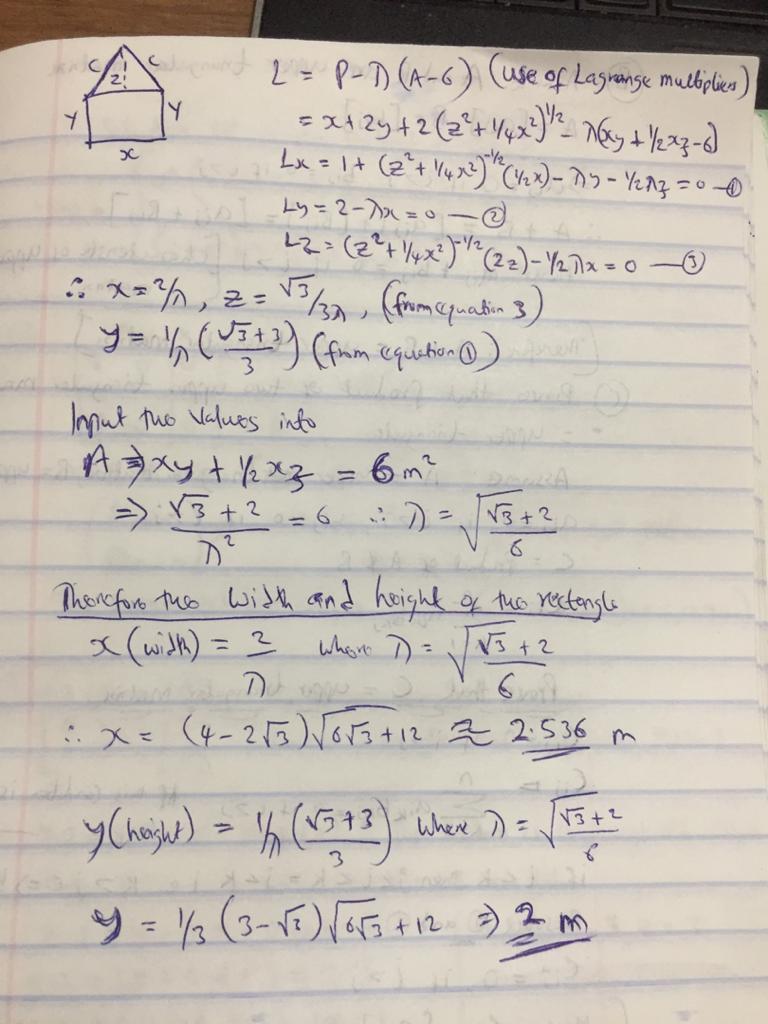 C C
z
Y Y
x
L = P - λ(A-6) (use of Lagrange multipliers)
= x + 2y + 2(z² + 1/4x²)^1/2 - λ(xy + 1/2xz - 6)
Lx = 1 + (z² + 1/4x²)^-1/2 (1/2x) - λy - 1/2λz = 0 — ①
Ly = 2 - λx = 0 — ②
Lz = (z² + 1/4x²)^-1/2 (2z) - 1/2λx = 0 — ③
∴ x = 2/λ, z = √3/3λ, (from equation 3)
y = 1/λ (√3+3/3) (from equation ①)
Input the values into
A ⇒ xy + 1/2xz = 6 m²
⇒ √3+2/λ² = 6 ∴ λ = √(√3+2/6)
Therefore the width and height of the rectangle
x (width) = 2/λ where λ = √(√3+2/6)
∴ x = (4-2√3)√(6√3+12) ≈ 2.536 m
y (height) = 1/λ (√3+3/3) where λ = √(√3+2/6)
y = 1/3 (3-√3)√(6√3+12) ⇒ 2 m